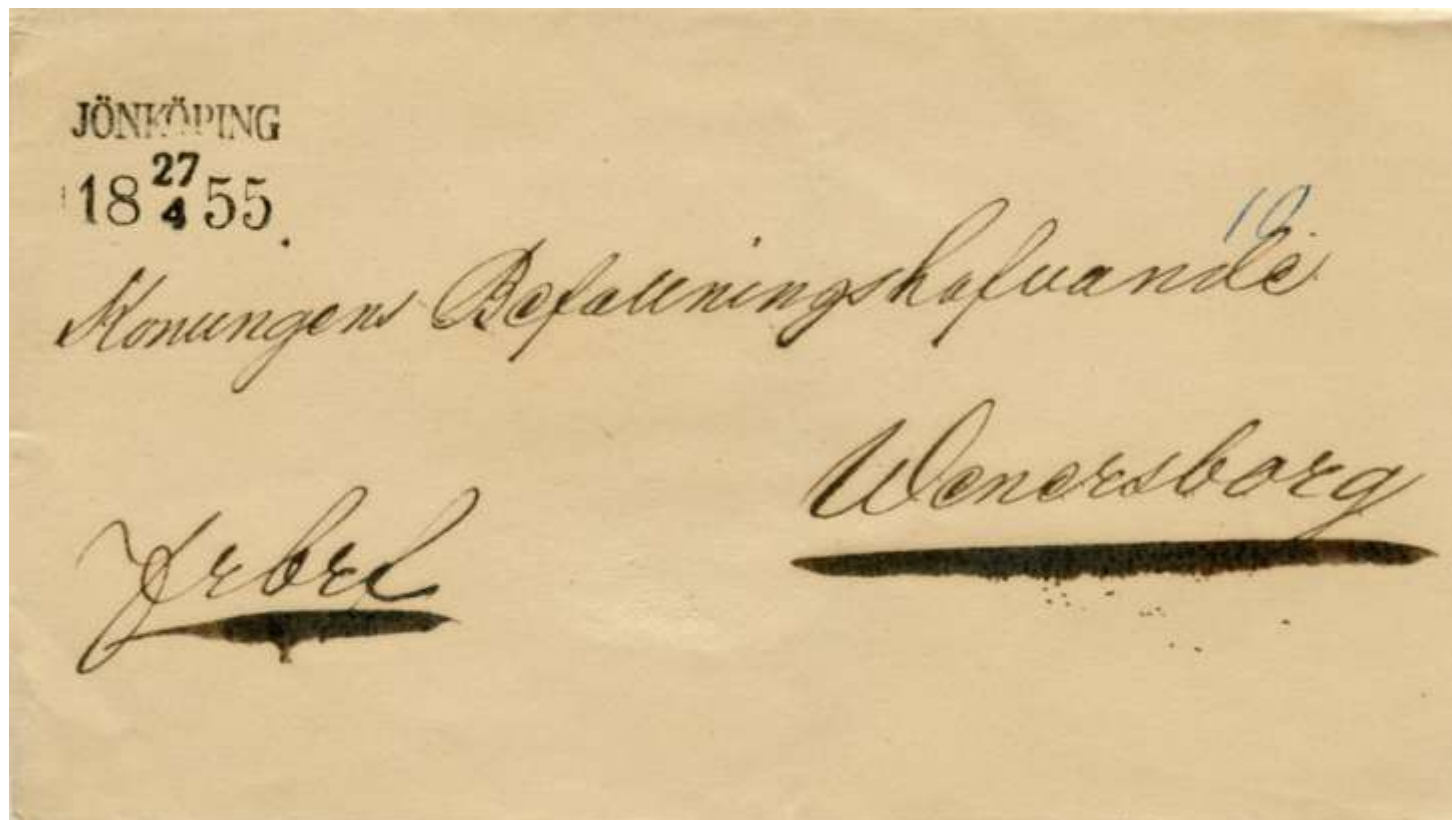 JÖNKÖPING
18 27/4 55
10
Konungens Befallningshafvande
Wenersborg
Frbref